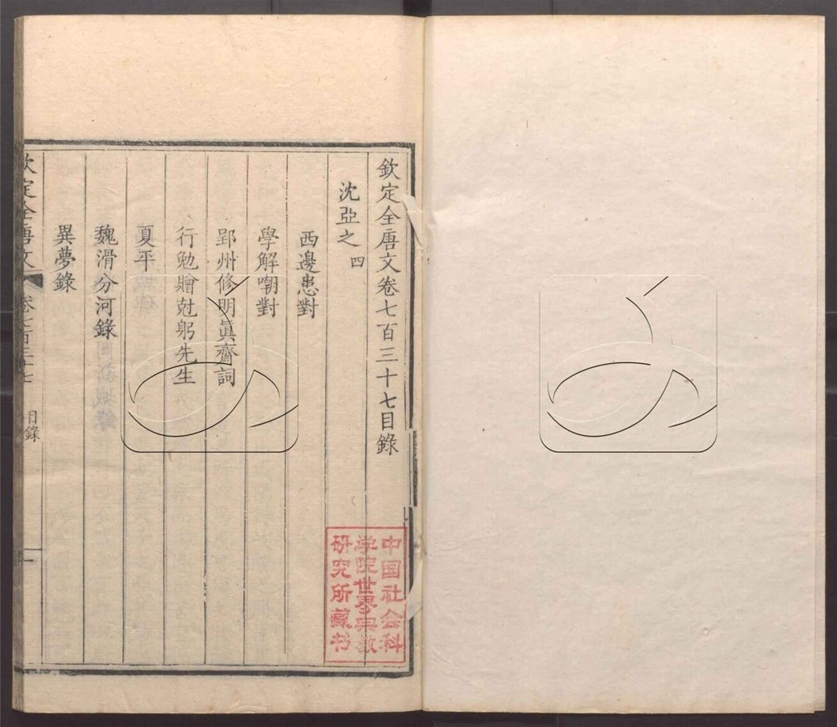 欽定全唐文卷七百三十七目錄
沈亞之 四
西邊患對
學解嘲對
郢州修明真齋詞
行勉贈尅躬先生
夏平
魏滑分河錄
異夢錄
欽定全唐文 卷七百三十七 目錄 一
中国社会科
学院世界宗教
研究所藏书